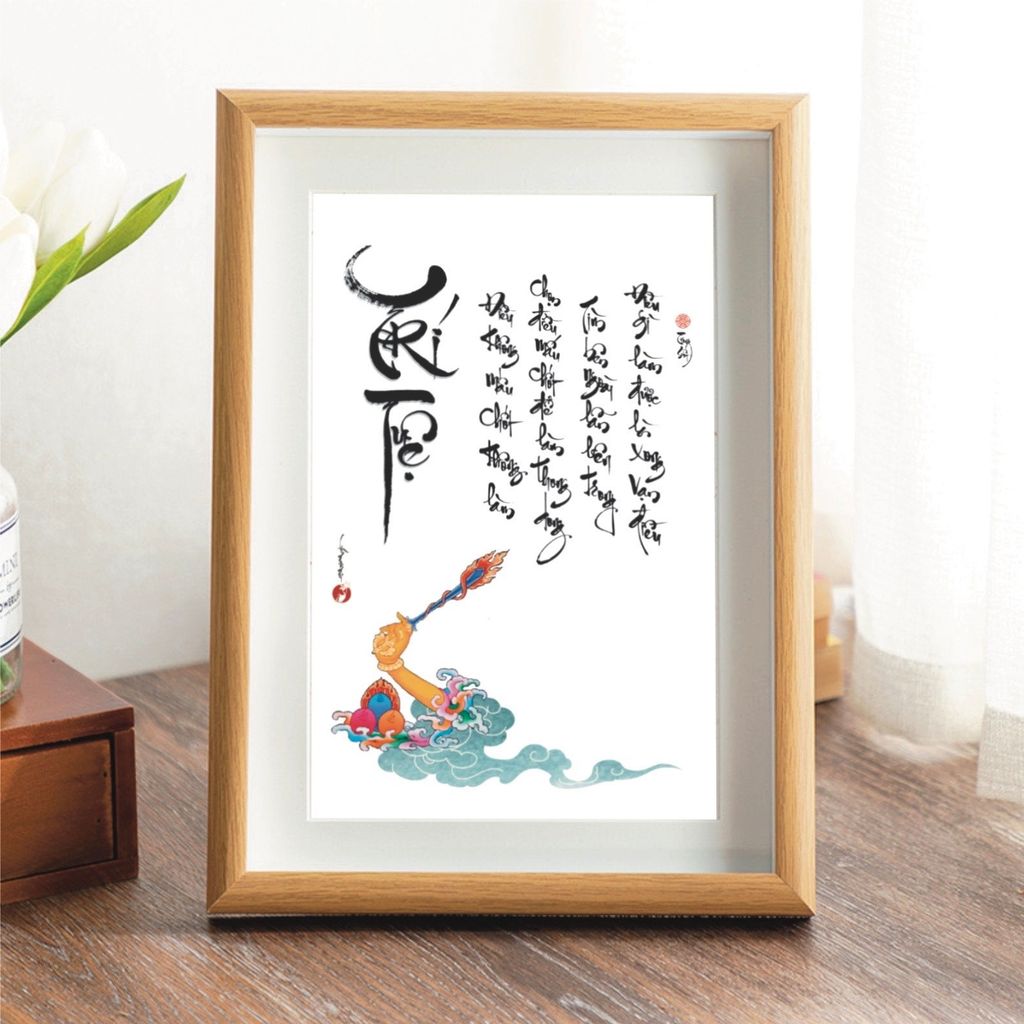 Trí
Tuệ
Điều không mấu chốt không làm
Chọn điều mấu chốt để làm thong dong
Tìm bên ngoài lẫn bên trong
Điều gì làm được là xong vạn điều